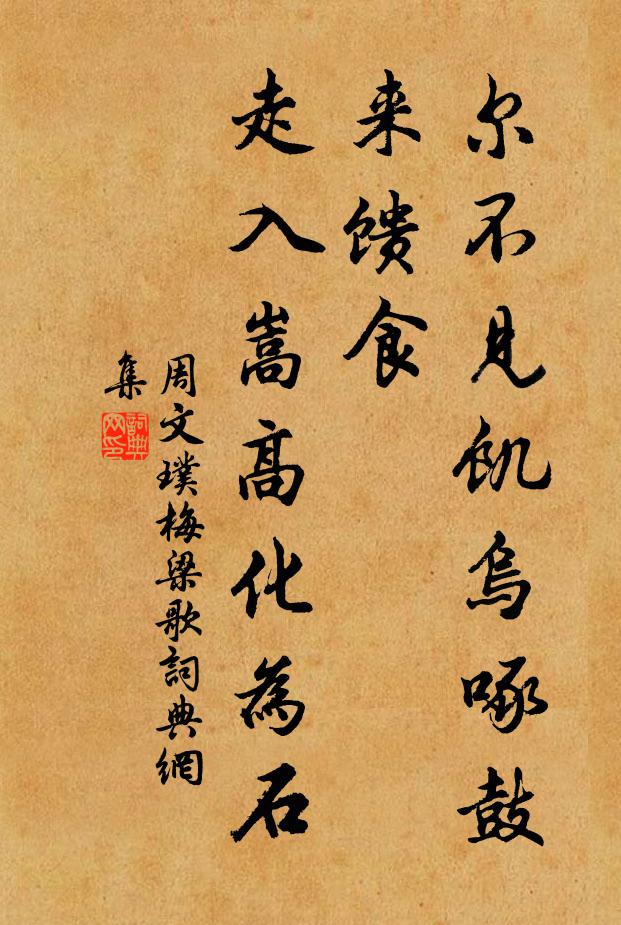 尔不见饥乌啄鼓
来馈食
走入嵩高化為石
周文璞梅梁歌詞典網
集
詞典
网印